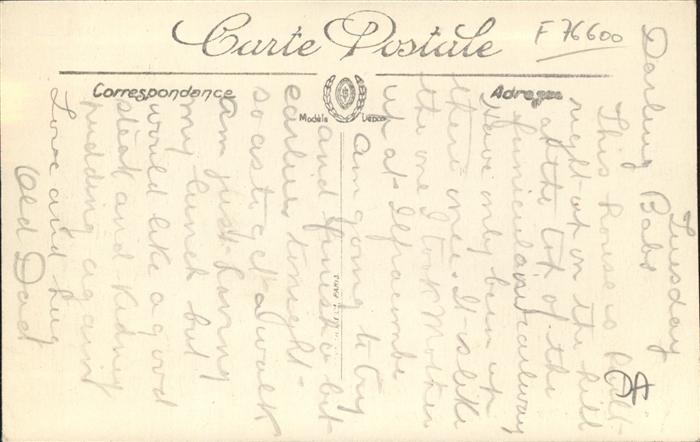 Carte Postale
F 76600
Correspondance
Adresse
Modèle Déposé
PARIS
Tuesday
Darling Babs
This house is built
right up on the hill
at the top of the
funicular railway
Have only been up
there once. It is like
the one I took Mother
up at Ilfracombe
Am going to try
and finish a bit
earlier tonight
so as to get a walk
Am just having
my lunch but
would like a good
steak and kidney
pudding again
Love and hug
Old Dad